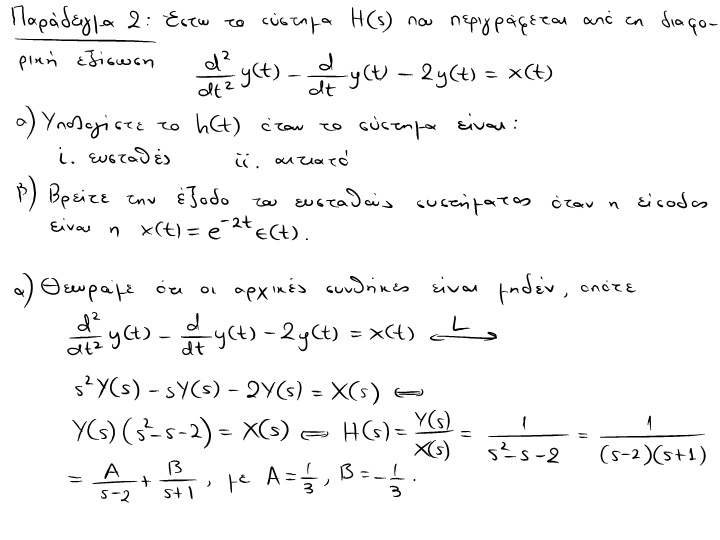 Παράδειγμα 2: Έστω το σύστημα H(s) που περιγράφεται από τη διαφο-
ρική εξίσωση d²/dt² y(t) - d/dt y(t) - 2y(t) = x(t)
α) Υπολογίστε το h(t) όταν το σύστημα είναι:
i. ευσταθές ii. αιτιατό
β) Βρείτε την έξοδο του ευσταθούς συστήματος όταν η είσοδος
είναι η x(t) = e^{-2t} ε(t).
α) Θεωράμε ότι οι αρχικές συνθήκες είναι μηδέν, οπότε
d²/dt² y(t) - d/dt y(t) - 2y(t) = x(t) ⟺ L
s²Y(s) - sY(s) - 2Y(s) = X(s) ⟺
Y(s)(s²-s-2) = X(s) ⟺ H(s) = Y(s)/X(s) = 1/(s²-s-2) = 1/((s-2)(s+1))
= A/(s-2) + B/(s+1), με A = 1/3, B = -1/3.